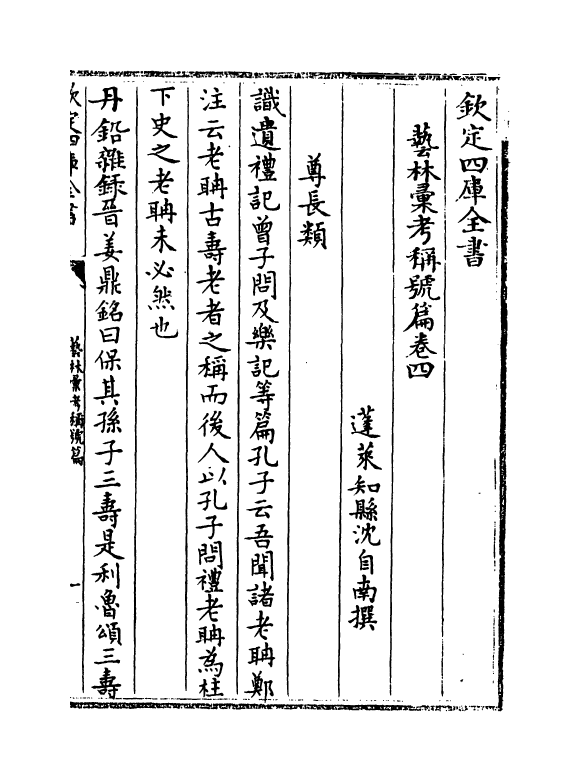 欽定四庫全書
藝林彚考稱號篇卷四
蓬萊知縣沈自南撰
尊長類
識遺禮記曾子問及樂記等篇孔子云吾聞諸老聃鄭
注云老聃古壽老者之稱而後人以孔子問禮老聃為柱
下史之老聃未必然也
丹鉛雜録晉姜鼎銘曰保其孫子三壽是利魯頌三壽
欽定四庫全書
藝林彚考稱號篇
一